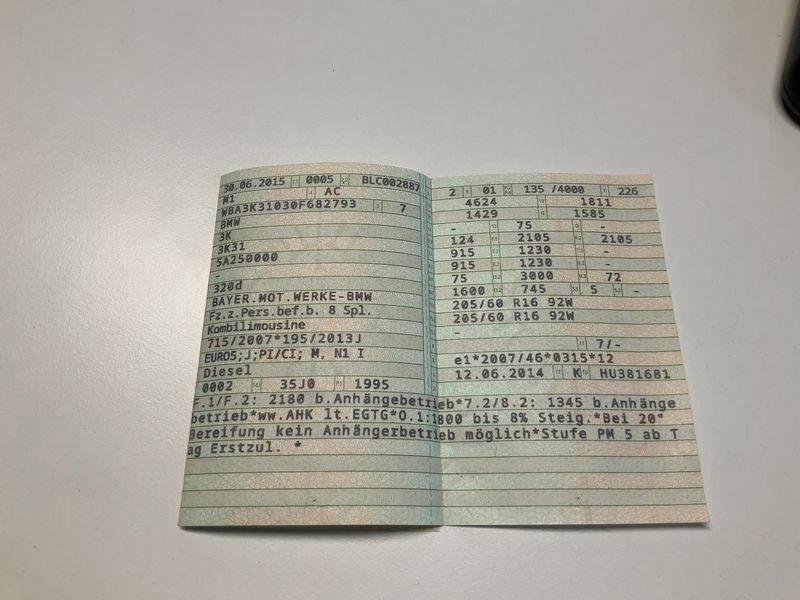 30.06.2015 0005 BLC002887
M1 AC
WBA3K31030F682793 7
BMW
3K
3K31
5A250000
-
320d
BAYER.MOT.WERKE-BMW
Fz.z.Pers.bef.b. 8 Spl.
Kombilimousine
715/2007*195/2013J
EURO5;J;PI/CI; M, N1 I
Diesel
0002 35J0 1995
2 01 135 /4000 226
4624 1811
1429 1585
- 75 -
124 2105 2105
915 1230 -
915 1230 -
75 3000 72
1600 745 5 -
205/60 R16 92W
205/60 R16 92W
-
7/-
e1*2007/46*0315*12
12.06.2014 K HU381681
F.1/F.2: 2180 b.Anhängebetrieb*7.2/8.2: 1345 b.Anhänge
betrieb*ww.AHK lt.EGTG*O.1:1800 bis 8% Steig.*Bei 20"
Bereifung kein Anhängerbetrieb möglich*Stufe PM 5 ab T
ag Erstzul. *